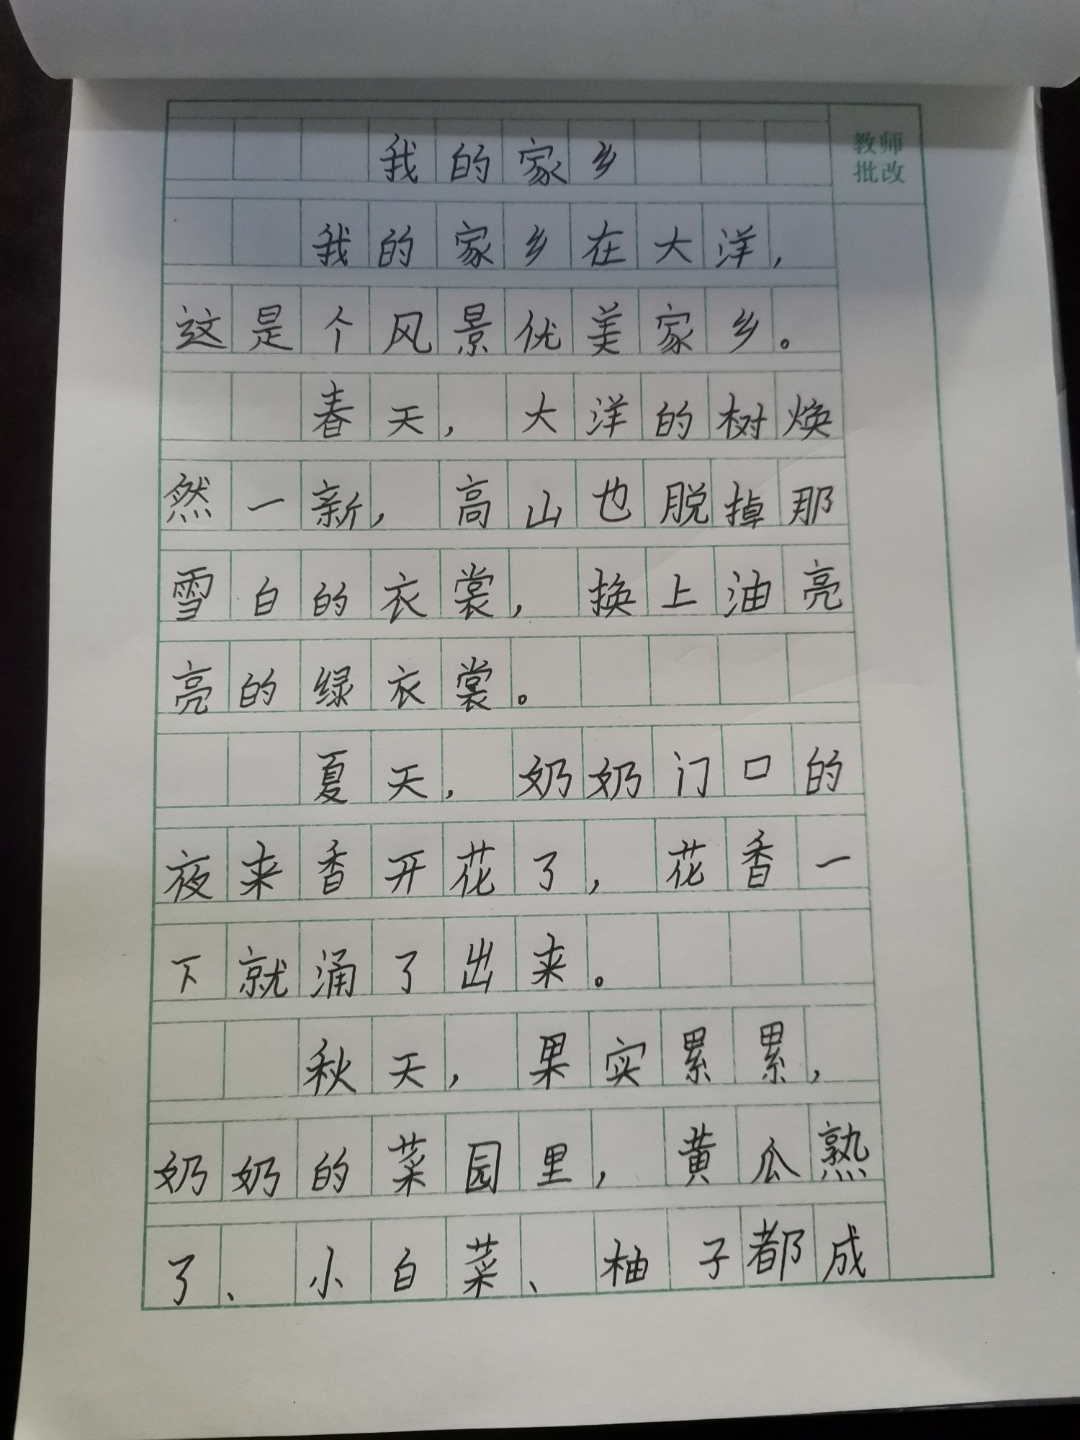 教师
批改
我的家乡
我的家乡在大洋，
这是个风景优美家乡。
春天，大洋的树焕
然一新，高山也脱掉那
雪白的衣裳，换上油亮
亮的绿衣裳。
夏天，奶奶门口的
夜来香开花了，花香一
下就涌了出来。
秋天，果实累累，
奶奶的菜园里，黄瓜熟
了、小白菜、柚子都成